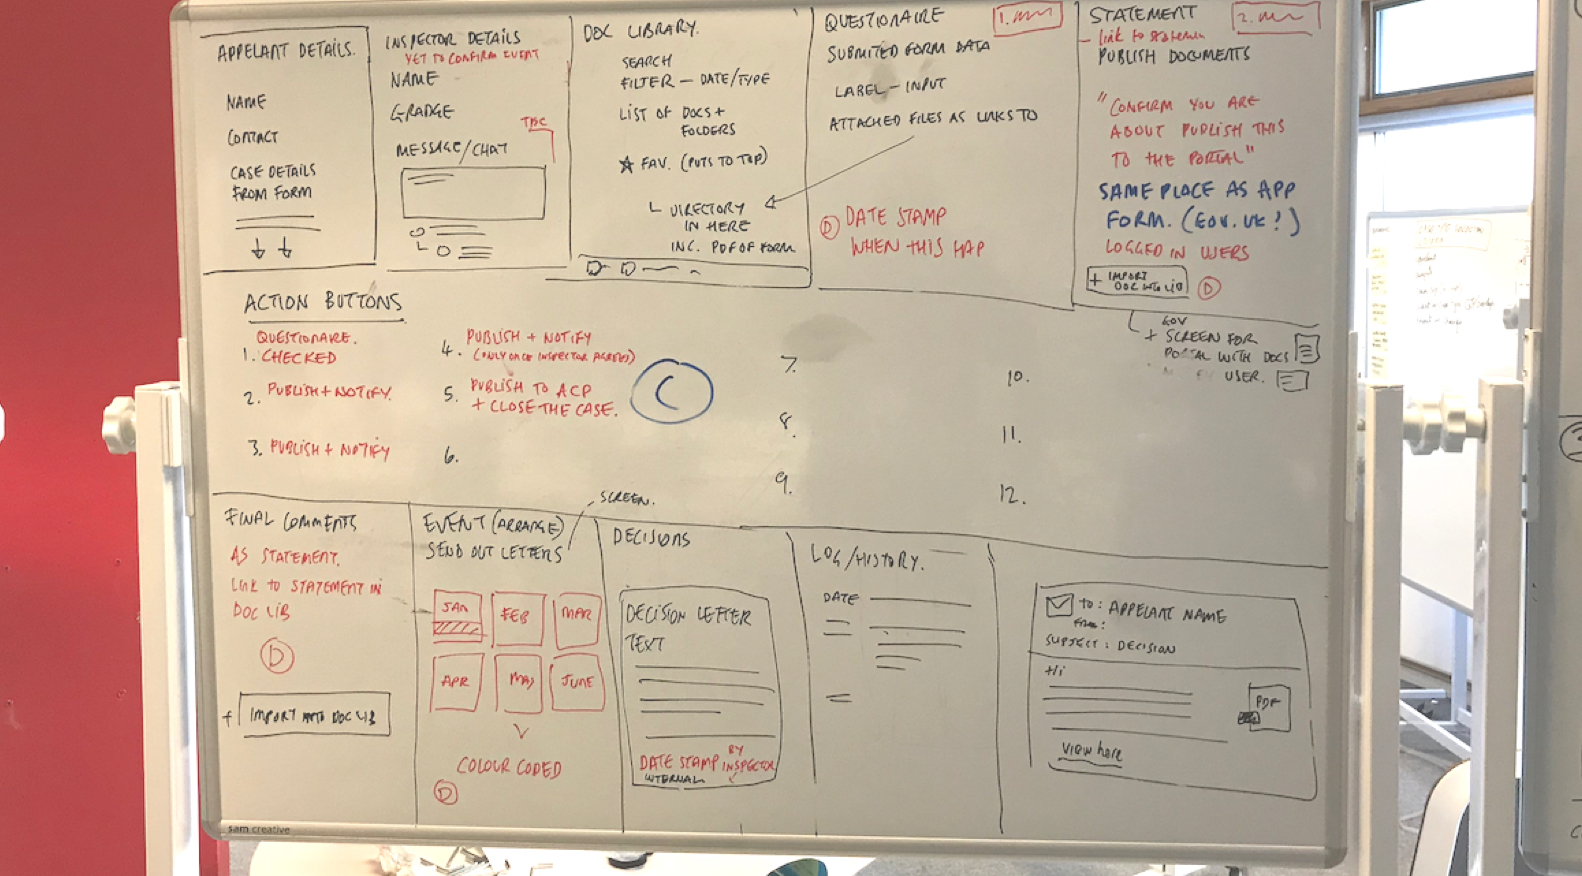 APPELANT DETAILS.
NAME
CONTACT
CASE DETAILS
FROM FORM
INSPECTOR DETAILS
YET TO CONFIRM EVENT
NAME
GRADGE
TBC
MESSAGE/CHAT
DOC LIBRARY.
SEARCH
FILTER – DATE/TYPE
LIST OF DOCS +
FOLDERS
☆ FAV. (PUTS TO TOP)
DIRECTORY
IN HERE
INC. PDF OF FORM
QUESTIONAIRE
1.
SUBMITED FORM DATA
LABEL – INPUT
ATTACHED FILES AS LINKS TO
D DATE STAMP
WHEN THIS HAP
STATEMENT
2.
– link to statement
PUBLISH DOCUMENTS
"CONFIRM YOU ARE
ABOUT PUBLISH THIS
TO THE PORTAL"
SAME PLACE AS APP
FORM. (GOV.UK!)
LOGGED IN USERS
+ IMPORT
DOC INTO LIB
D
GOV
+ SCREEN FOR
PORTAL WITH DOCS
USER.
ACTION BUTTONS
QUESTIONAIRE.
1. CHECKED
2. PUBLISH + NOTIFY.
3. PUBLISH + NOTIFY
4. PUBLISH + NOTIFY
(ONLY ONCE INSPECTOR AGREES)
5. PUBLISH TO ACP
+ CLOSE THE CASE.
6.
C
7.
8.
9.
10.
11.
12.
FINAL COMMENTS
AS STATEMENT.
LINK TO STATEMENT IN
DOC LIB
D
+ IMPORT INTO DOC LIB
EVENT (ARRANGE)
SEND OUT LETTERS
SCREEN.
JAN
FEB
MAR
APR
MAY
JUNE
COLOUR CODED
D
DECISIONS
DECISION LETTER
TEXT
DATE STAMP BY INSPECTOR
INTERNAL
LOG/HISTORY.
DATE
TO: APPELANT NAME
FROM:
SUBJECT: DECISION
Hi
PDF
View here
sam creative